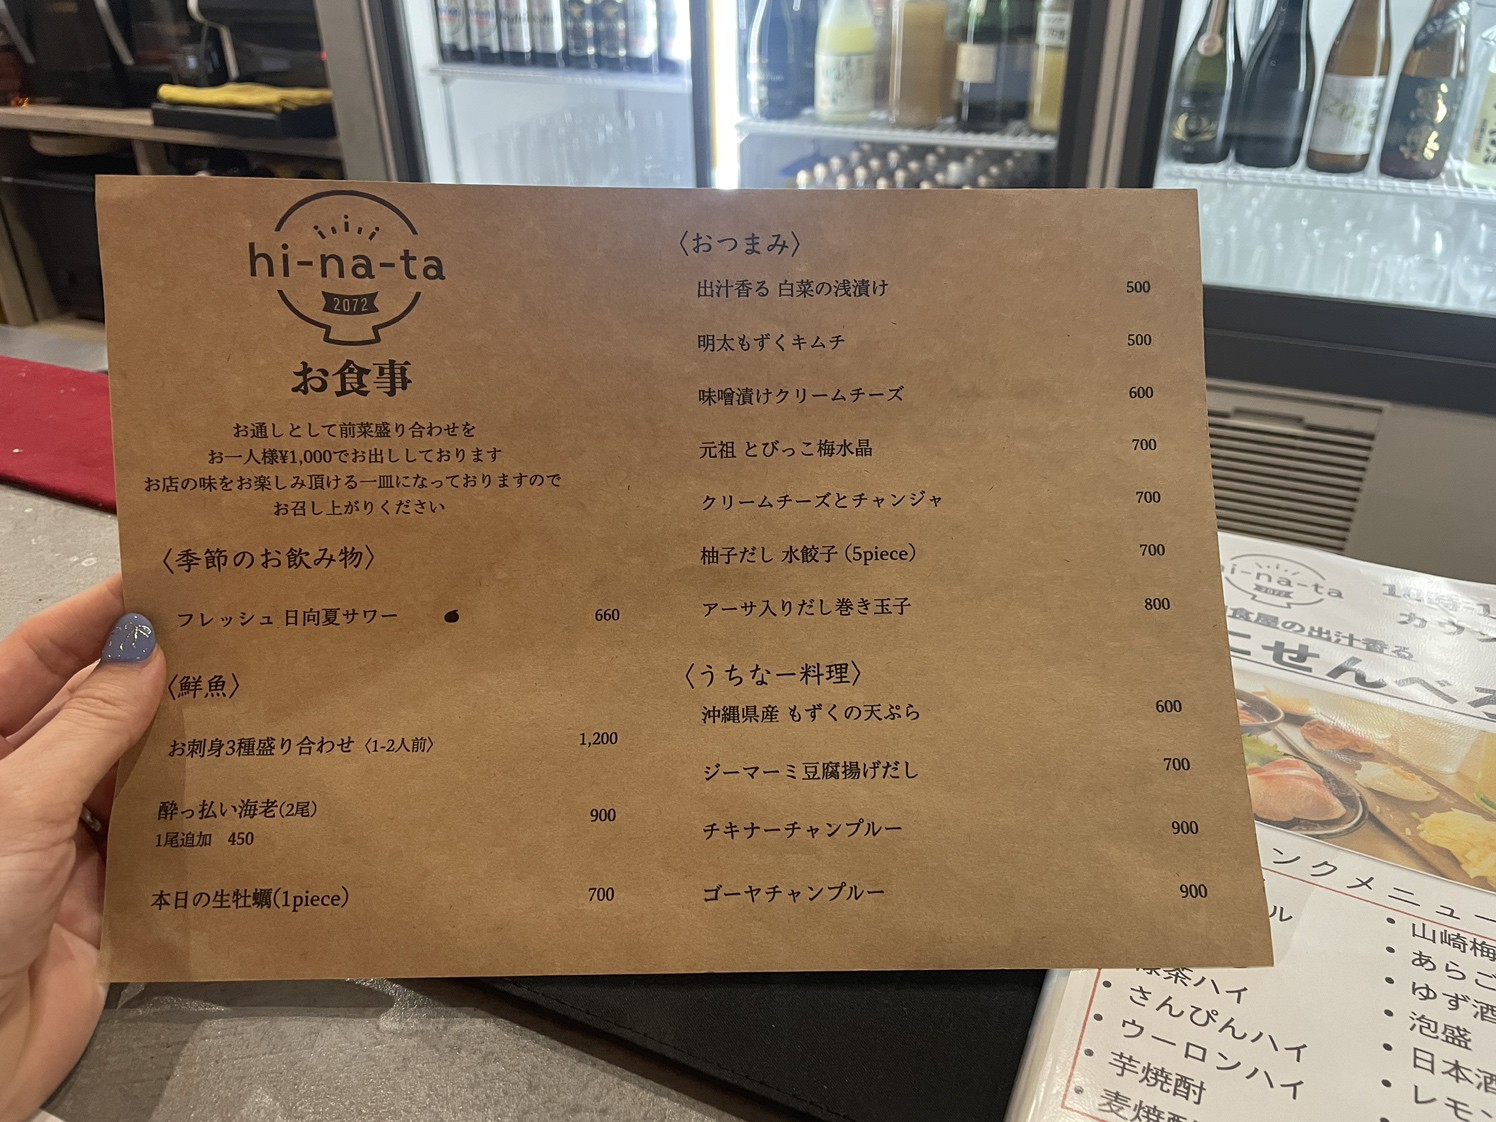 hi-na-ta
2072
お食事
お通しとして前菜盛り合わせを
お一人様¥1,000でお出ししております
お店の味をお楽しみ頂ける一皿になっておりますので
お召し上がりください
〈季節のお飲み物〉
フレッシュ 日向夏サワー 660
〈鮮魚〉
お刺身3種盛り合わせ〈1-2人前〉 1,200
酔っ払い海老(2尾) 900
1尾追加 450
本日の生牡蠣(1piece) 700
〈おつまみ〉
出汁香る 白菜の浅漬け 500
明太もずくキムチ 500
味噌漬けクリームチーズ 600
元祖 とびっこ梅水晶 700
クリームチーズとチャンジャ 700
柚子だし 水餃子（5piece） 700
アーサ入りだし巻き玉子 800
〈うちなー料理〉
沖縄県産 もずくの天ぷら 600
ジーマーミ豆腐揚げだし 700
チキナーチャンプルー 900
ゴーヤチャンプルー 900
hi-na-ta
2072
カウン
食屋の出汁香る
せんべろ
ンクメニュー
ル
茶ハイ
• さんぴんハイ
• ウーロンハイ
• 芋焼酎
• 麦焼酎
• 山崎梅
• あらご
• ゆず酒
• 泡盛
• 日本酒
• レモン